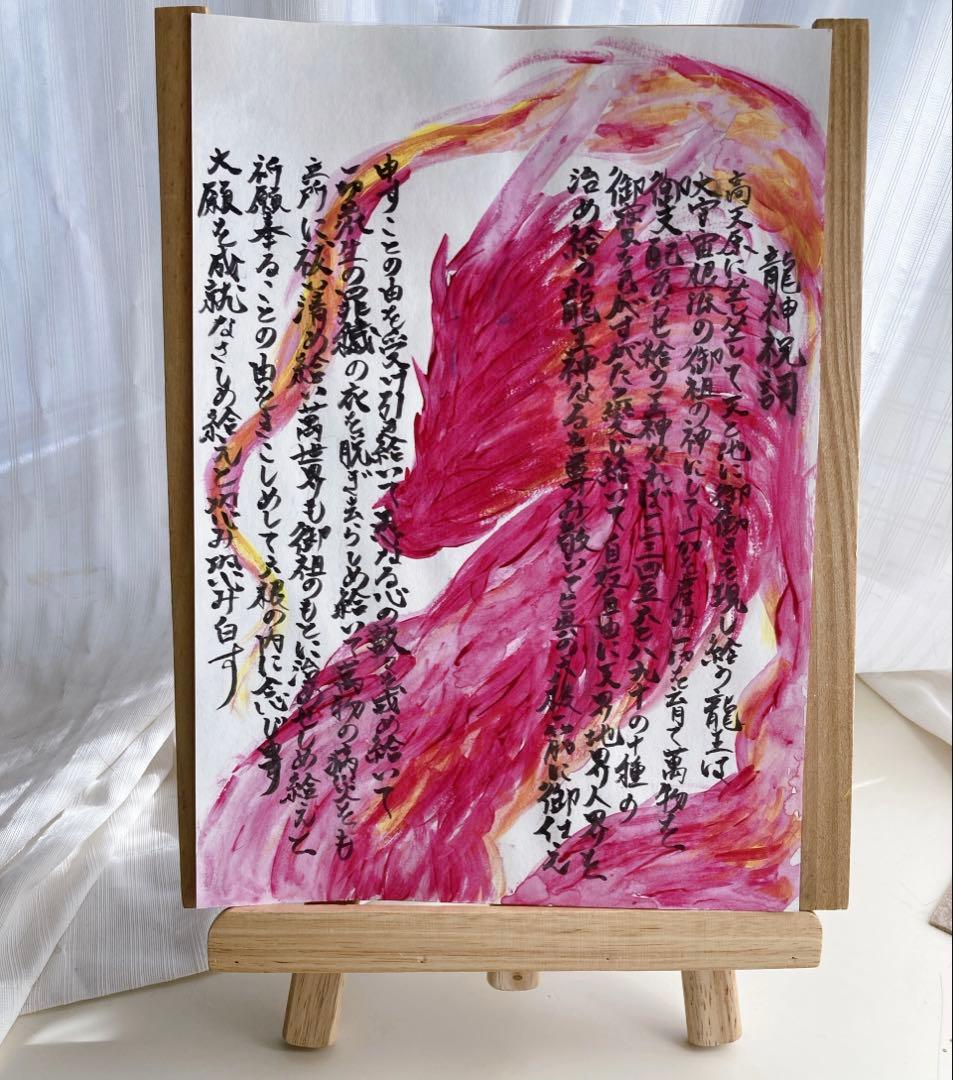 龍神祝詞
高天原に坐し坐して天と地に御働きを現し給う龍王は
大宇宙根源の御祖の神にして一切を産み一切を育て萬物を
御支配あらせ給う王神なれば一二三四五六七八九十の十種の
御寶を己がすがたと變じ給いて自在自由に天界地界人界を
治め給う龍王神なるを尊み敬いて眞の六根一筋に御仕え
申すことの由を受け引き給いて愚なる心の数々を戒め給いて
一切衆生の罪穢の衣を脱ぎ去らしめ給いて萬物の病災をも
立所に祓い清め給い萬世界も御祖のもとに治めせしめ給えと
祈願奉ることの由をきこしめして六根の内に念じ申す
大願を成就なさしめ給えと恐み恐み白す